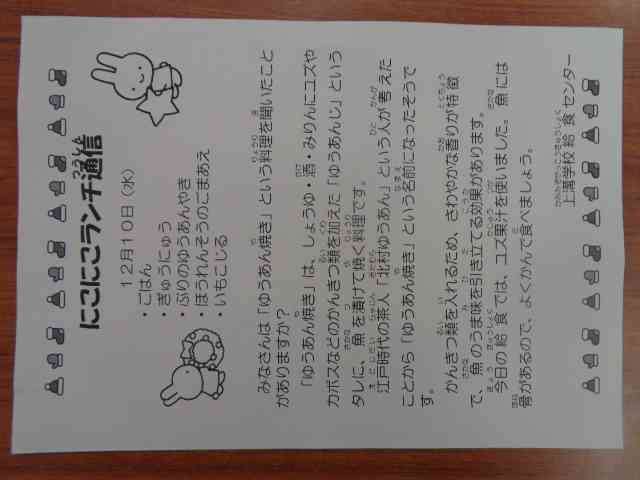 にこにこランチ通信
１２月１０日（水）
・ごはん
・ぎゅうにゅう
・ぶりのゆうあんやき
・ほうれんそうのごまあえ
・いもこじる
みなさんは「ゆうあん焼き」という料理を聞いたこと
がありますか？
「ゆうあん焼き」は、しょうゆ・酒・みりんにユズや
カボスなどのかんきつ類を加えた「ゆうあんじ」という
タレに、魚を漬けて焼く料理です。
江戸時代の茶人「北村ゆうあん」という人が考えた
ことから「ゆうあん焼き」という名前になったそうで
す。
かんきつ類を入れるため、さわやかな香りが特徴
で、魚のうま味を引き立てる効果があります。
今日の給食では、ユズ果汁を使いました。魚には
骨があるので、よくかんで食べましょう。
上溝学校給食センター